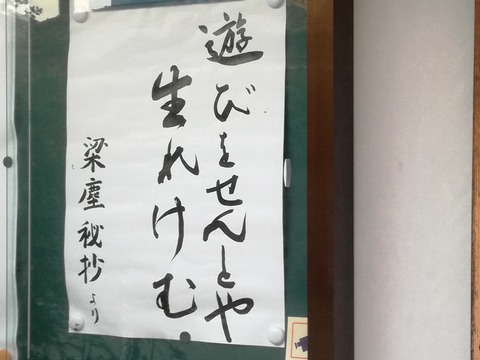 遊びをせんとや
生れけむ
梁塵秘抄より